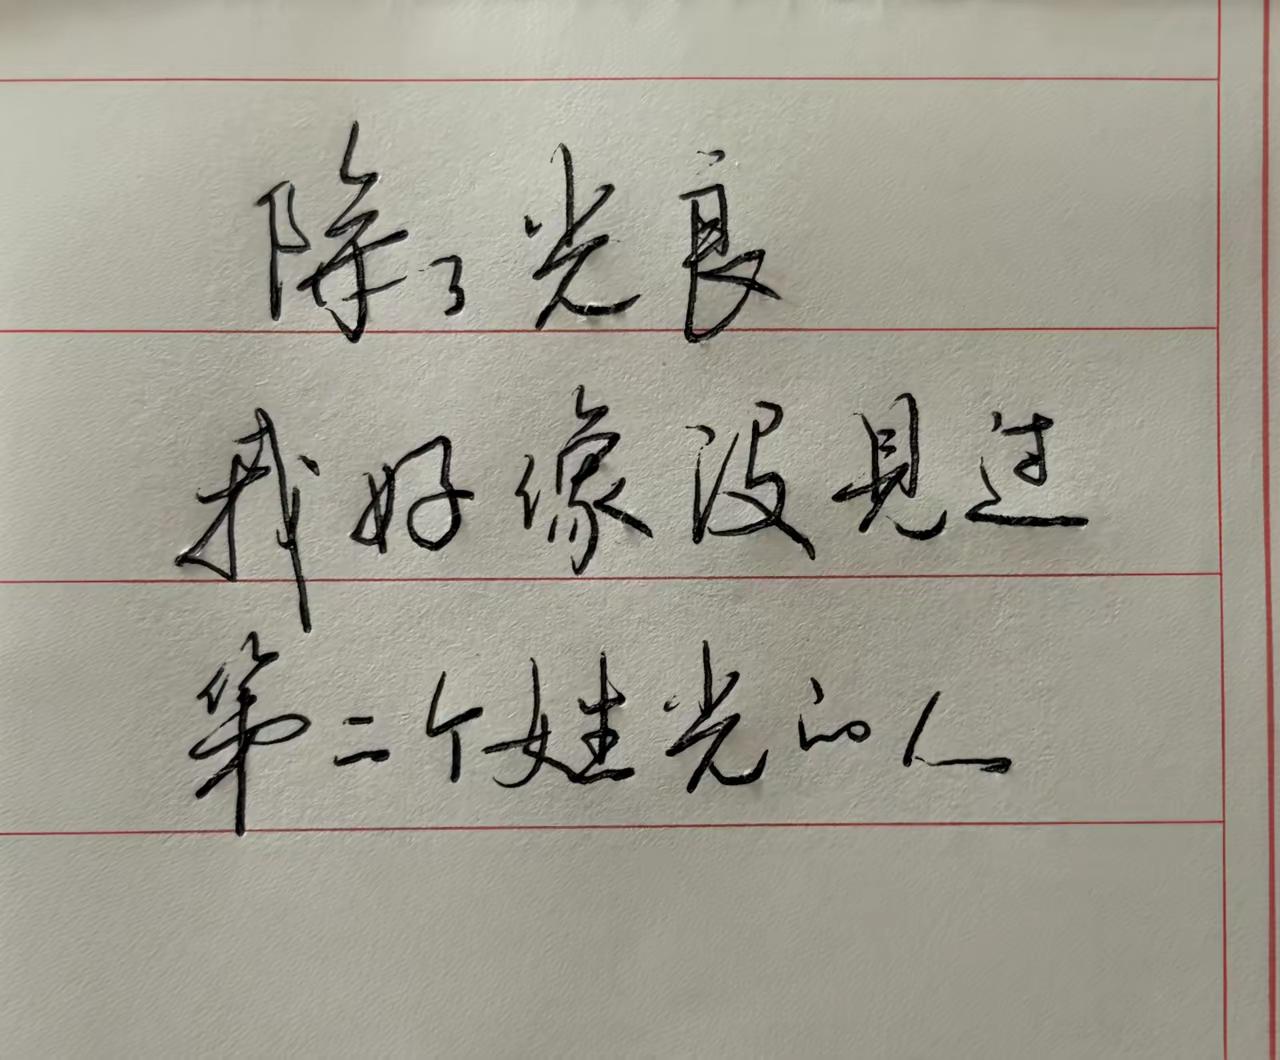 除了光良
我好像没见过
第二个姓光的人